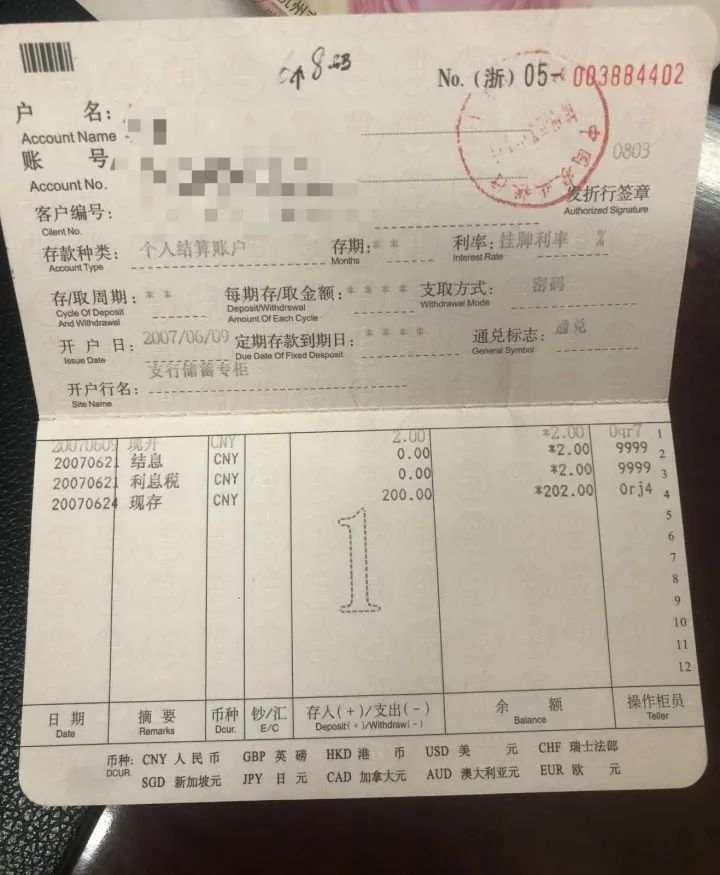 8
No. (浙) 05- 003884402
户 名:
Account Name
账 号
Account No.
0803
发折行签章
Authorized Signature
客户编号:
Client No.
存款种类: 个人结算账户 存期: ** 利率: 挂牌利率 %
Account Type Months Interest Rate
存/取周期: ** 每期存/取金额: **** 支取方式: 密码
Cycle Of Deposit And Withdrawal Deposit/Withdrewal Amount Of Each Cycle Withdrawal Mode
开 户 日: 2007/06/09 定期存款到期日: **** 通兑标志: 通兑
Issue Date Due Date Of Fixed Desposit General Symbol
开户行名: 支行储蓄专柜
Site Name
20070609 现开 CNY 2.00 *2.00 0qr7 1
20070621 结息 CNY 0.00 *2.00 9999 2
20070621 利息税 CNY 0.00 *2.00 9999 3
20070624 现存 CNY 200.00 *202.00 0rj4 4
5
6
7
8
9
10
11
12
1
日 期 摘 要 币种 钞/汇 存入(+)/支出(-) 余 额 操作柜员
Date Remarks Dcur. E/C Deposit(+)/Withdraw(-) Balance Teller
币种: CNY 人民币 GBP 英镑 HKD 港 币 USD 美 元 CHF 瑞士法郎
DCUR. SGD 新加坡元 JPY 日 元 CAD 加拿大元 AUD 澳大利亚元 EUR 欧 元